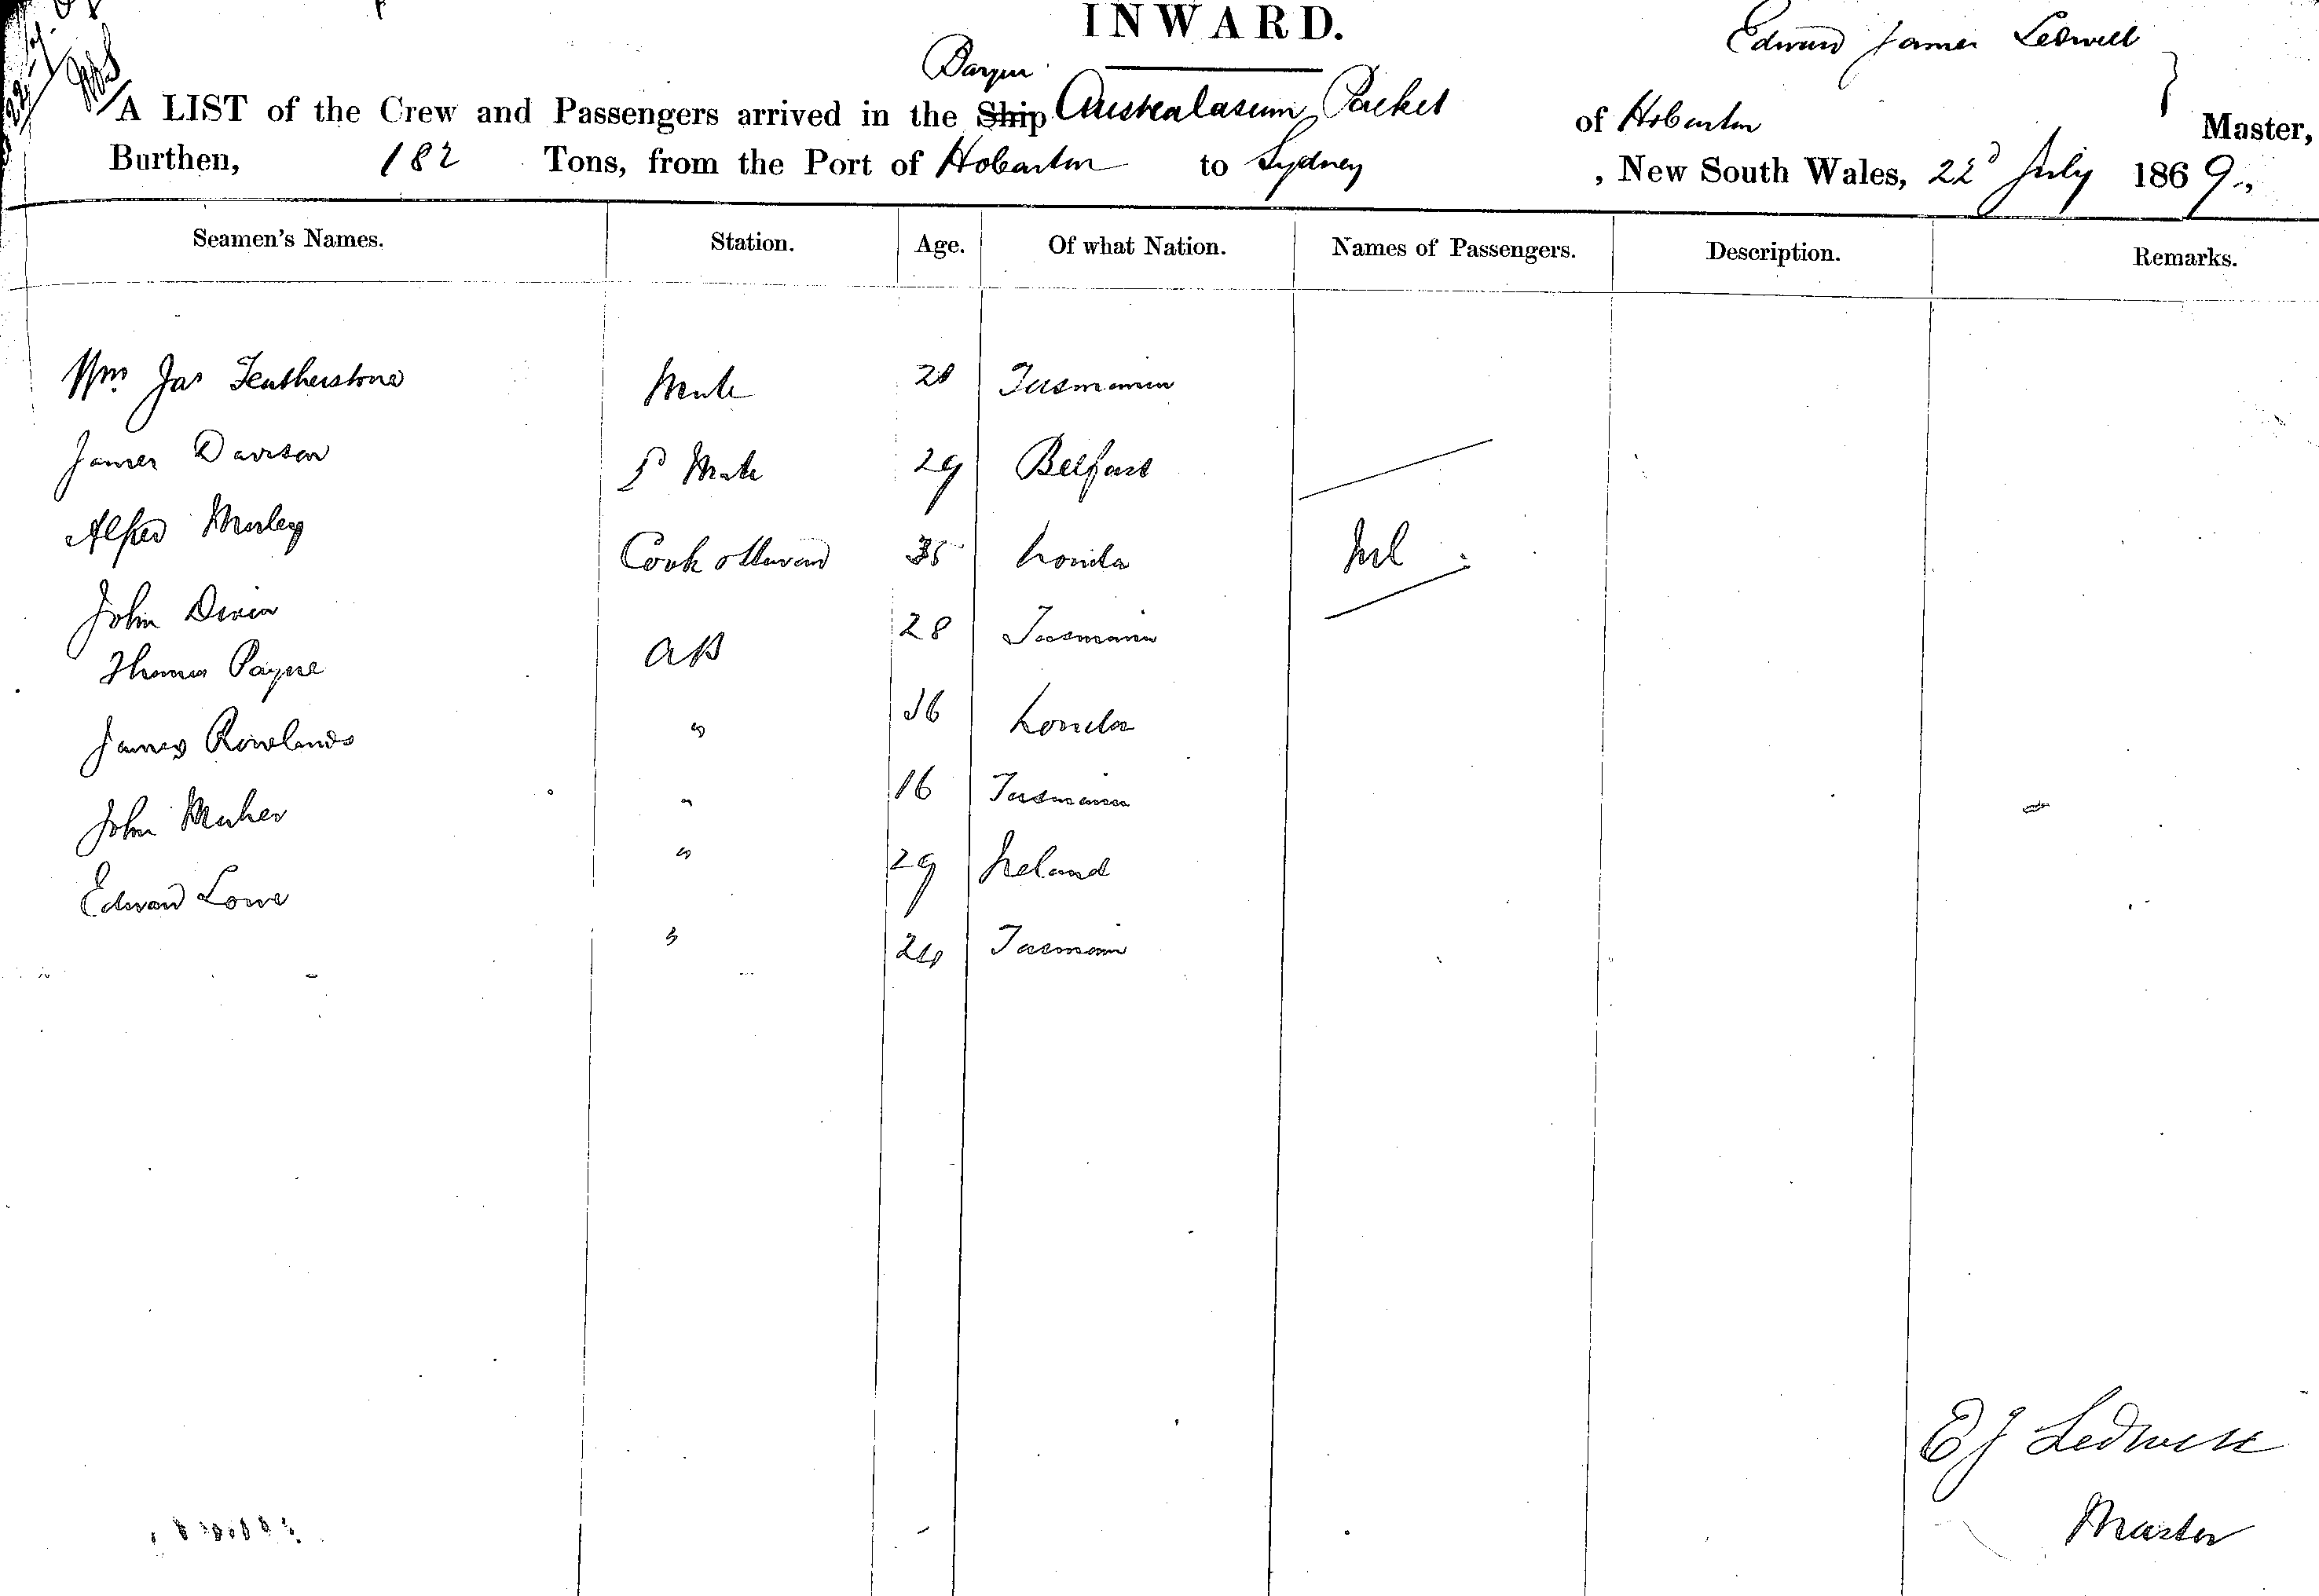 INWARD.
Edward James Ledwell
Barque
A LIST of the Crew and Passengers arrived in the Ship Australasian Packet of Hobarton Master,
Burthen, 182 Tons, from the Port of Hobarton to Sydney, New South Wales, 22d July 1869.
Seamen's Names. Station. Age. Of what Nation. Names of Passengers. Description. Remarks.
Wm Jas Featherstone Mate 28 Tasmania
James Davison 2d Mate 29 Belfast
Alfred Morley Cook & Steward 35 London Nil
John 28 Tasmania
Thomas Payne AB 36 London
James Rowlands " 16 Tasmania
John Maher " 29 Ireland
Edward Lowe " 24 Tasmania
E J Ledwell
Master